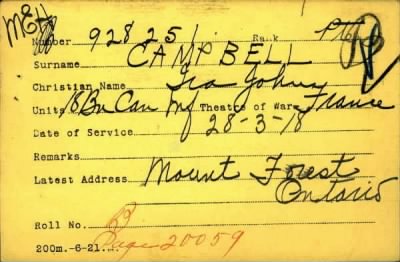 M&H
Number 92825 Rank Pte
Surname CAMPBELL
Christian Name Ira John
Units 18 Bn Can Inf Theatre of War France
Date of Service 28-3-18
Remarks
Latest Address Mount Forest
Ontario
Roll No. B
Page 20059
200m.-6-21.